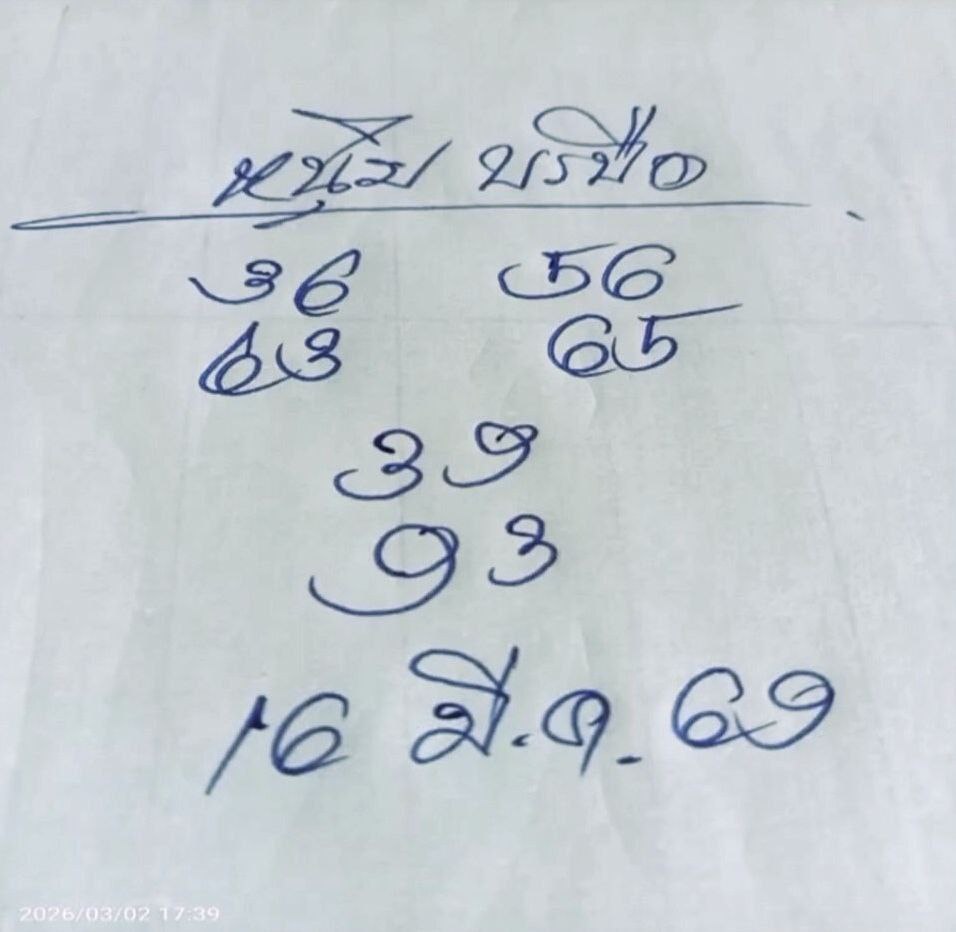 หนุ่ม บรบือ
36 56
63 65
39
93
16 มี.ค. 69
2026/03/02 17:39